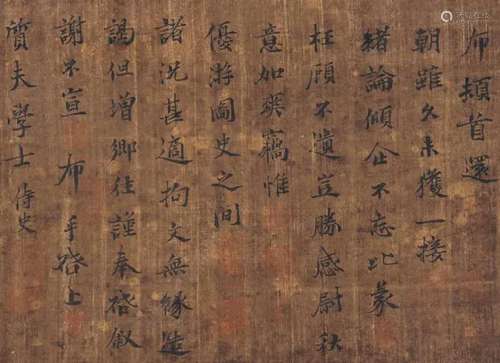 布頓首還
朝雖久未獲一接
緒論傾企不忘比蒙
枉顧不遺豈勝感尉秋
意如爽竊惟
優游圖史之間
諸況甚適拘文無緣造
謁但增鄉往謹奉啓敘
謝不宣 布 手啓上
質夫學士 侍史